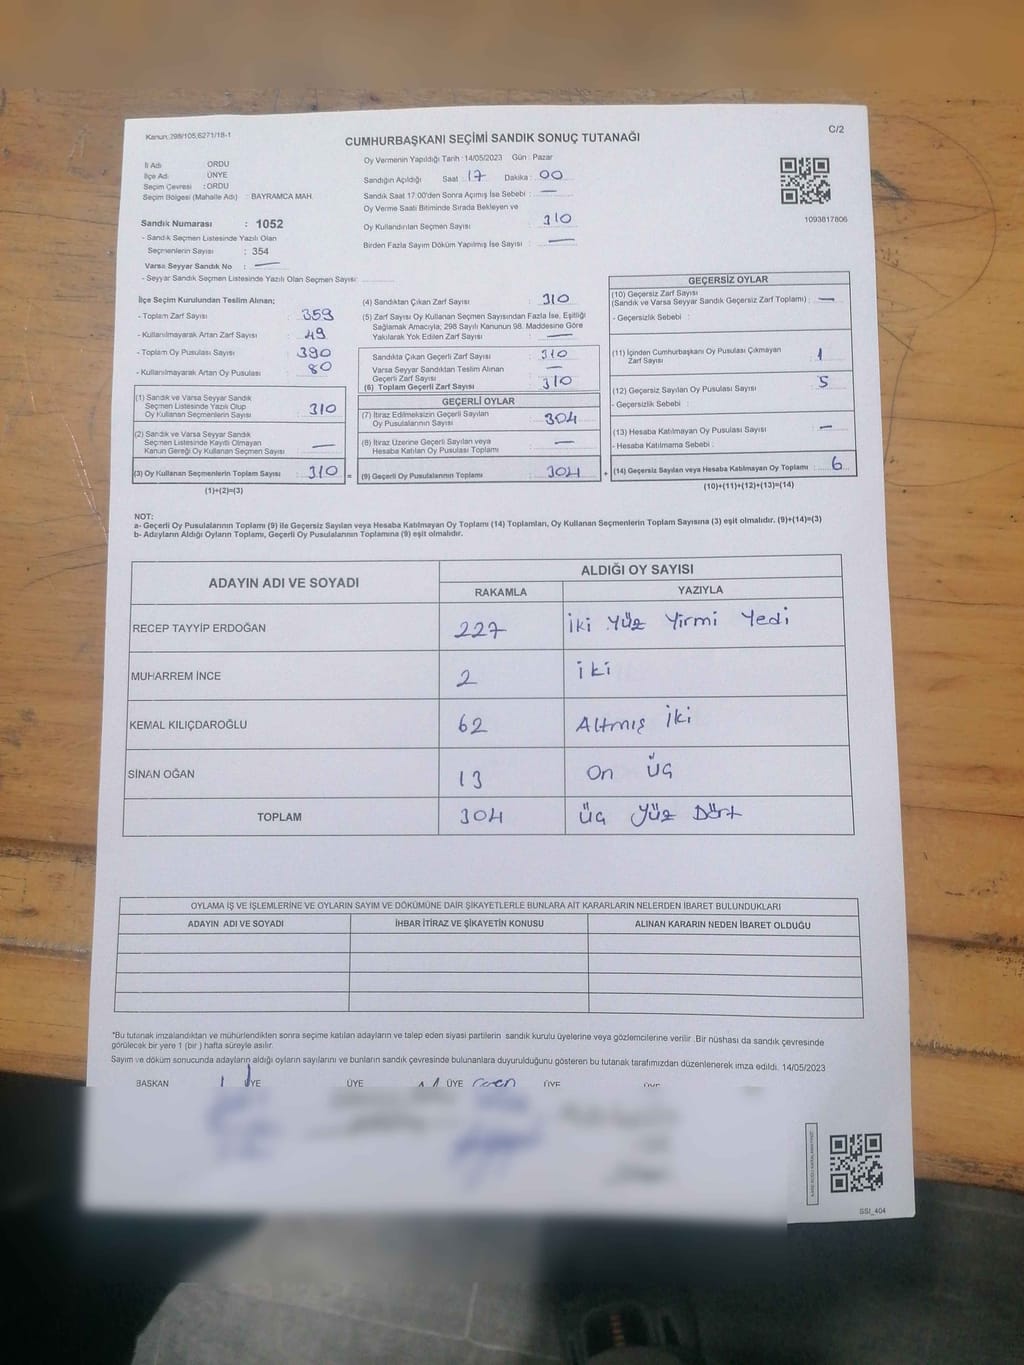 Kanun: 298/105,6271/18-1
CUMHURBAŞKANI SEÇİMİ SANDIK SONUÇ TUTANAĞI
C/2
İl Adı : ORDU
İlçe Adı : ÜNYE
Seçim Çevresi : ORDU
Seçim Bölgesi (Mahalle Adı) : BAYRAMCA MAH.
Sandık Numarası : 1052
- Sandık Seçmen Listesinde Yazılı Olan
Seçmenlerin Sayısı : 354
Varsa Seyyar Sandık No : —
- Seyyar Sandık Seçmen Listesinde Yazılı Olan Seçmen Sayısı:
Oy Vermenin Yapıldığı Tarih : 14/05/2023 Gün : Pazar
Sandığın Açıldığı Saat : 17 Dakika : 00
Sandık Saat 17:00'den Sonra Açımış İse Sebebi : —
Oy Verme Saati Bitiminde Sırada Bekleyen ve
Oy Kullandırılan Seçmen Sayısı : 310
Birden Fazla Sayım Döküm Yapılmış İse Sayısı : —
1093817806
İlçe Seçim Kurulundan Teslim Alınan;
- Toplam Zarf Sayısı : 359
- Kullanılmayarak Artan Zarf Sayısı : 49
- Toplam Oy Pusulası Sayısı : 390
- Kullanılmayarak Artan Oy Pusulası : 80
(1) Sandık ve Varsa Seyyar Sandık
Seçmen Listesinde Yazılı Olup
Oy Kullanan Seçmenlerin Sayısı 310
(2) Sandık ve Varsa Seyyar Sandık
Seçmen Listesinde Kayıtlı Olmayan
Kanun Gereği Oy Kullanan Seçmen Sayısı —
(3) Oy Kullanan Seçmenlerin Toplam Sayısı : 310 =
(1)+(2)=(3)
(4) Sandıktan Çıkan Zarf Sayısı : 310
(5) Zarf Sayısı Oy Kullanan Seçmen Sayısından Fazla İse, Eşitliği
Sağlamak Amacıyla; 298 Sayılı Kanunun 98. Maddesine Göre
Yakılarak Yok Edilen Zarf Sayısı : —
Sandıkta Çıkan Geçerli Zarf Sayısı : 310
Varsa Seyyar Sandıktan Teslim Alınan
Geçerli Zarf Sayısı —
(6) Toplam Geçerli Zarf Sayısı : 310
GEÇERLİ OYLAR
(7) İtiraz Edilmeksizin Geçerli Sayılan
Oy Pusulalarının Sayısı : 304
(8) İtiraz Üzerine Geçerli Sayılan veya
Hesaba Katılan Oy Pusulası Toplamı : —
(9) Geçerli Oy Pusulalarının Toplamı : 304 +
GEÇERSİZ OYLAR
(10) Geçersiz Zarf Sayısı
(Sandık ve Varsa Seyyar Sandık Geçersiz Zarf Toplamı) : —
- Geçersizlik Sebebi :
(11) İçinden Cumhurbaşkanı Oy Pusulası Çıkmayan
Zarf Sayısı : 1
(12) Geçersiz Sayılan Oy Pusulası Sayısı : 5
- Geçersizlik Sebebi :
(13) Hesaba Katılmayan Oy Pusulası Sayısı : —
- Hesaba Katılmama Sebebi :
(14) Geçersiz Sayılan veya Hesaba Katılmayan Oy Toplamı : 6
(10)+(11)+(12)+(13)=(14)
NOT:
a- Geçerli Oy Pusulalarının Toplamı (9) ile Geçersiz Sayılan veya Hesaba Katılmayan Oy Toplamı (14) Toplamları, Oy Kullanan Seçmenlerin Toplam Sayısına (3) eşit olmalıdır. (9)+(14)=(3)
b- Adayların Aldığı Oyların Toplamı, Geçerli Oy Pusulalarının Toplamına (9) eşit olmalıdır.
ADAYIN ADI VE SOYADI
ALDIĞI OY SAYISI
RAKAMLA YAZIYLA
RECEP TAYYİP ERDOĞAN 227 İki Yüz Yirmi Yedi
MUHARREM İNCE 2 İki
KEMAL KILIÇDAROĞLU 62 Altmış İki
SİNAN OĞAN 13 On Üç
TOPLAM 304 Üç Yüz Dört
OYLAMA İŞ VE İŞLEMLERİNE VE OYLARIN SAYIM VE DÖKÜMÜNE DAİR ŞİKAYETLERLE BUNLARA AİT KARARLARIN NELERDEN İBARET BULUNDUKLARI
ADAYIN ADI VE SOYADI İHBAR İTİRAZ VE ŞİKAYETİN KONUSU ALINAN KARARIN NEDEN İBARET OLDUĞU
*Bu tutanak imzalandıktan ve mühürlendikten sonra seçime katılan adayların ve talep eden siyasi partilerin sandık kurulu üyelerine veya gözlemcilerine verilir .Bir nüshası da sandık çevresinde
görülecek bir yere 1 (bir ) hafta süreyle asılır.
Sayım ve döküm sonucunda adayların aldığı oyların sayılarını ve bunların sandık çevresinde bulunanlara duyurulduğunu gösteren bu tutanak tarafımızdan düzenlenerek imza edildi. 14/05/2023
BAŞKAN ÜYE ÜYE ÜYE ÜYE ÜYE
SSI_404